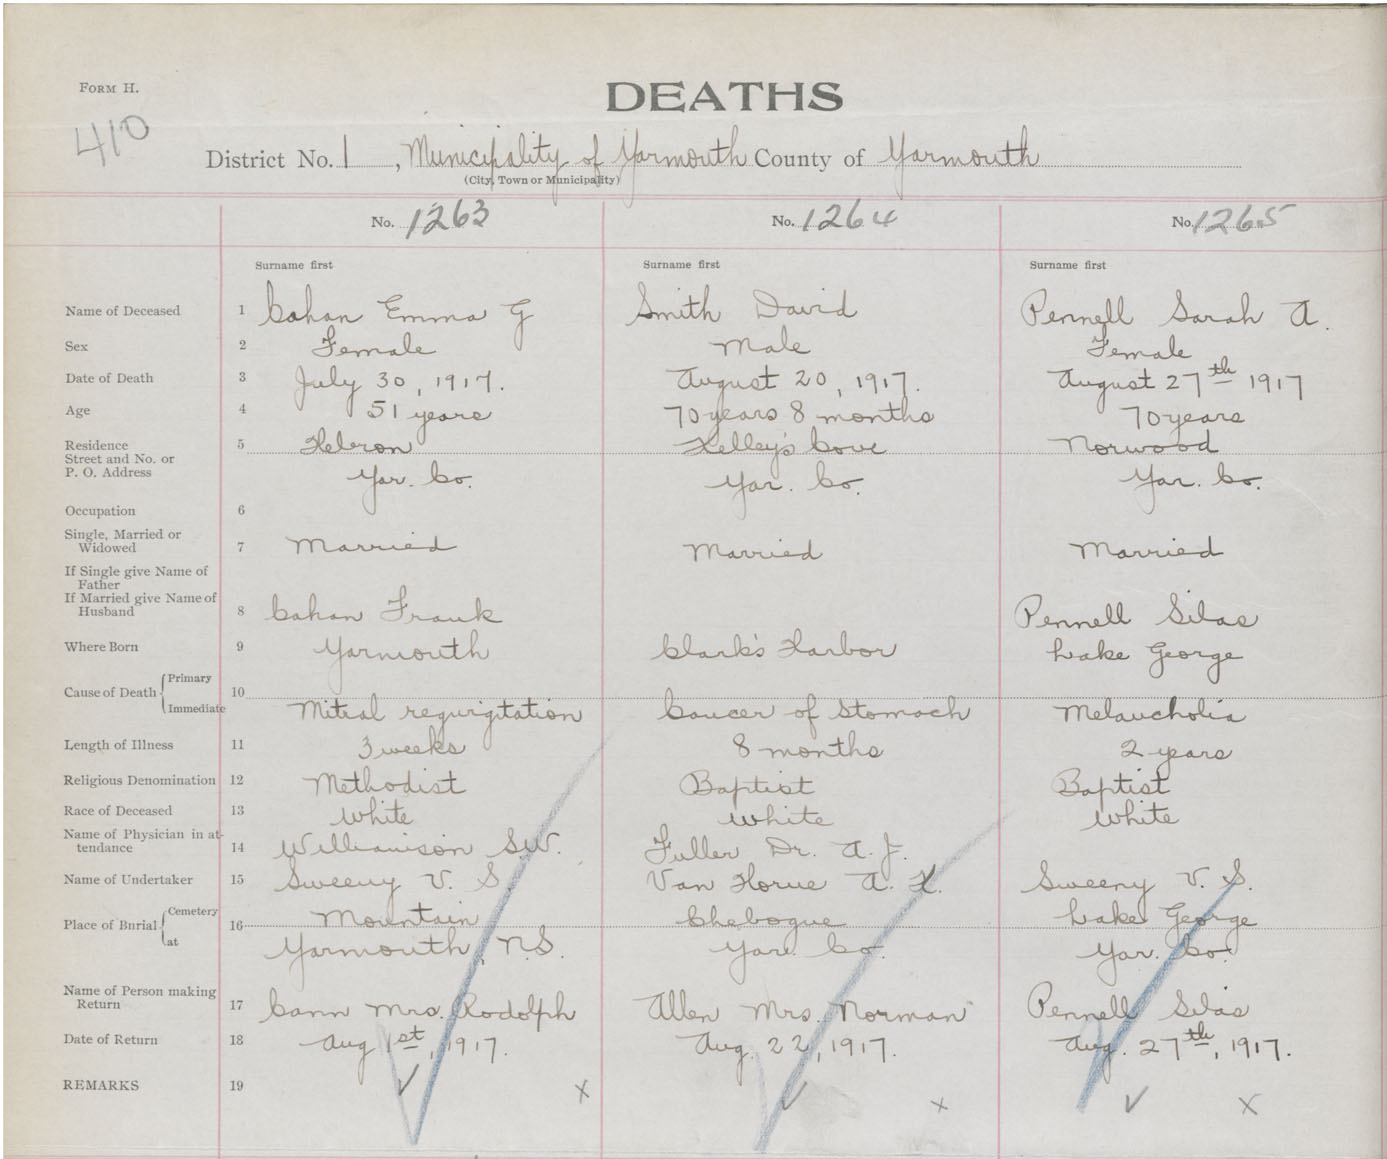 FORM H.
DEATHS
410
District No. 1, Municipality of Yarmouth County of Yarmouth
(City, Town or Municipality)
No. 1263 No. 1264 No. 1265
Surname first Surname first Surname first
Name of Deceased 1 Cahan Emma G Smith David Pennell Sarah A.
Sex 2 Female Male Female
Date of Death 3 July 30, 1917. August 20, 1917. August 27th 1917
Age 4 51 years 70 years 8 months 70 years
Residence 5 Hebron Kelley's Cove Norwood
Street and No. or
P. O. Address Yar. Co. Yar. Co. Yar. Co.
Occupation 6
Single, Married or
Widowed 7 Married Married Married
If Single give Name of
Father
If Married give Name of
Husband 8 Cahan Frank Pennell Silas
Where Born 9 Yarmouth Clark's Harbor Lake George
Primary
Cause of Death 10
Immediate Mitral regurgitation Cancer of Stomach Melancholia
Length of Illness 11 3 weeks 8 months 2 years
Religious Denomination 12 Methodist Baptist Baptist
Race of Deceased 13 White White White
Name of Physician in at-
tendance 14 Williamson S.W. Fuller Dr. A. J.
Name of Undertaker 15 Sweeny V. S. Van Horne A. K. Sweeny V. S.
Cemetery Mountain Chebogue Lake George
Place of Burial 16
at Yarmouth, N.S. Yar. Co. Yar. Co.
Name of Person making
Return 17 Cann Mrs. Rodolph Allen Mrs. Norman Pennell Silas
Date of Return 18 Aug 1st, 1917. Aug. 22, 1917. Aug. 27th, 1917.
REMARKS 19 ✓ x ✓ x ✓ x